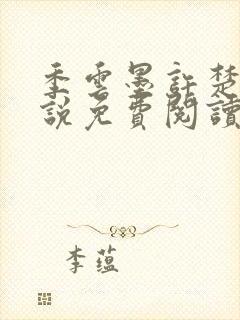 季雲墨許楚
說免費閱讀
李蘊